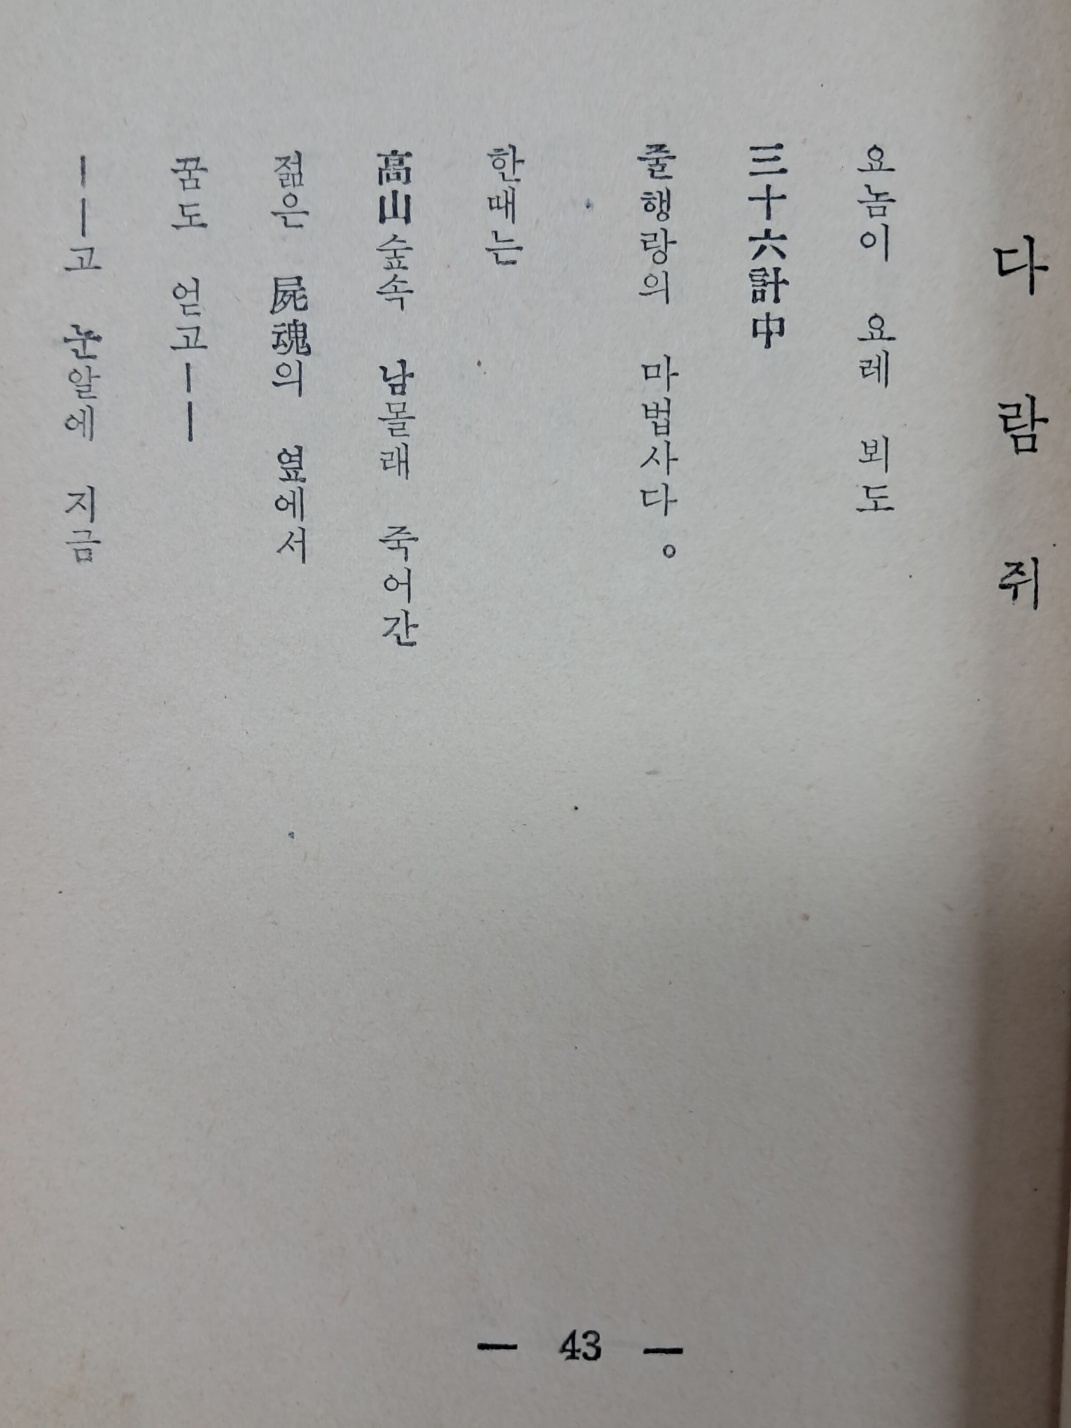 다람쥐
요놈이 요레 뵈도
三十六計中
줄행랑의 마법사다。
한때는
高山숲속 남몰래 죽어간
젊은 屍魂의 옆에서
꿈도 얻고——
——고 눈알에 지금
— 43 —